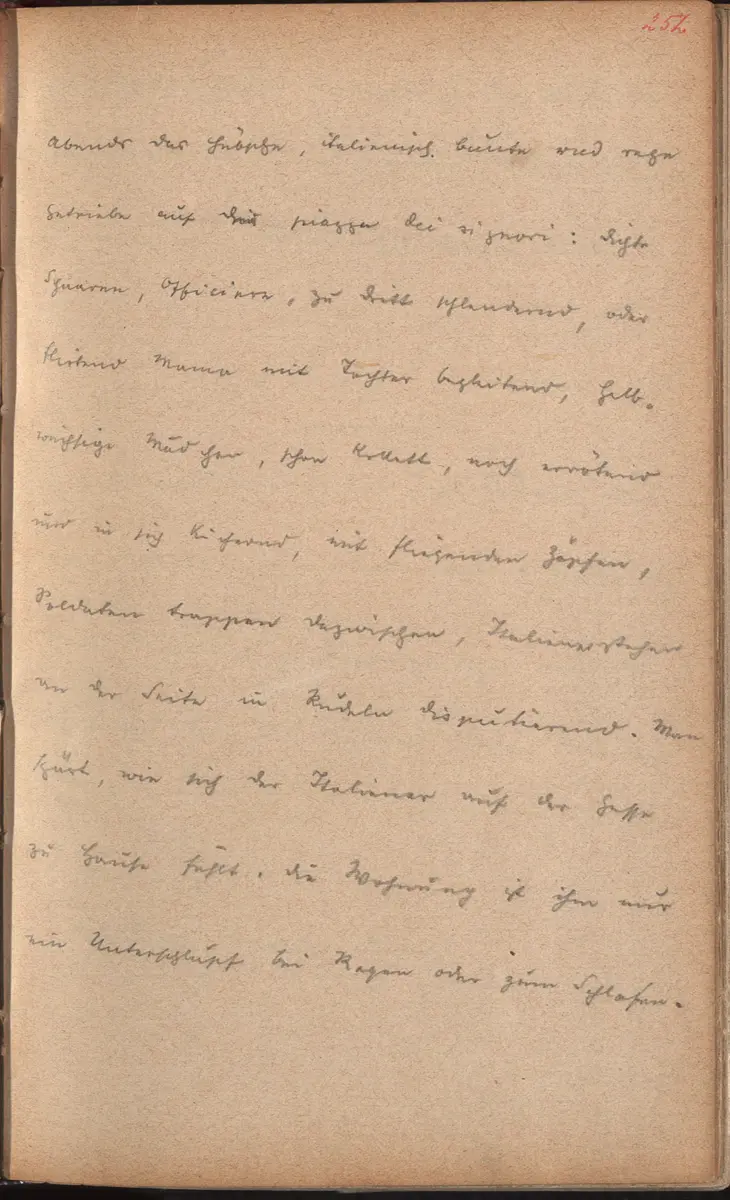 252
Abends das hübsche, italienisch bunte und rege
Getriebe auf der piazza dei signori: dichte
Schaaren, Officiere, zu dritt schlendernd, oder
flirtend Mama mit Tochter begleitend, halb-
wüchsige Mädchen, schon kokett, noch errötend
und in sich kichernd, mit fliegenden Zöpfen,
Soldaten trappen dazwischen, Italiener stehen
an der Seite in Rudeln disputierend. Man
spürt, wie sich der Italiener auf der Gasse
zu Hause fühlt. Die Wohnung ist ihm nur
ein Unterschlupf bei Regen oder zum Schlafen.